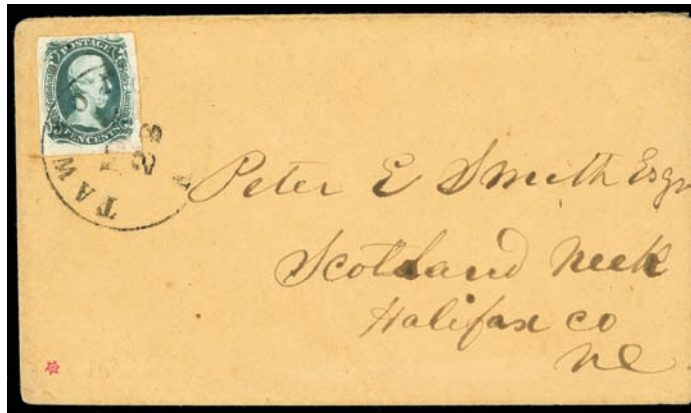 POSTAGE
TEN CENTS
TAW
Peter E Smith Esqr
Scotland Neck
Halifax co
NC